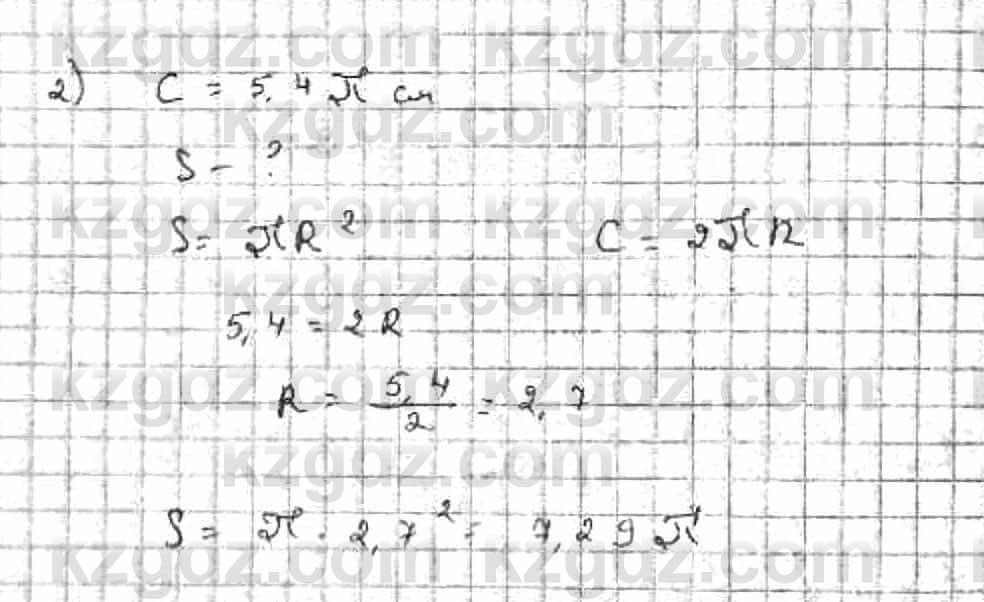 kzgdz.com kzgdz.com
2) C = 5,4 π см
kzgdz.com
S - ?
kzgdz.com kzgdz.com
S = πR² C = 2πR
kzgdz.com
5,4 = 2R
kzgdz.com kzgdz.com
R = 5,4/2 = 2,7
kzgdz.com
S = π · 2,7² = 7,29 π
kzgdz.com kzgdz.com